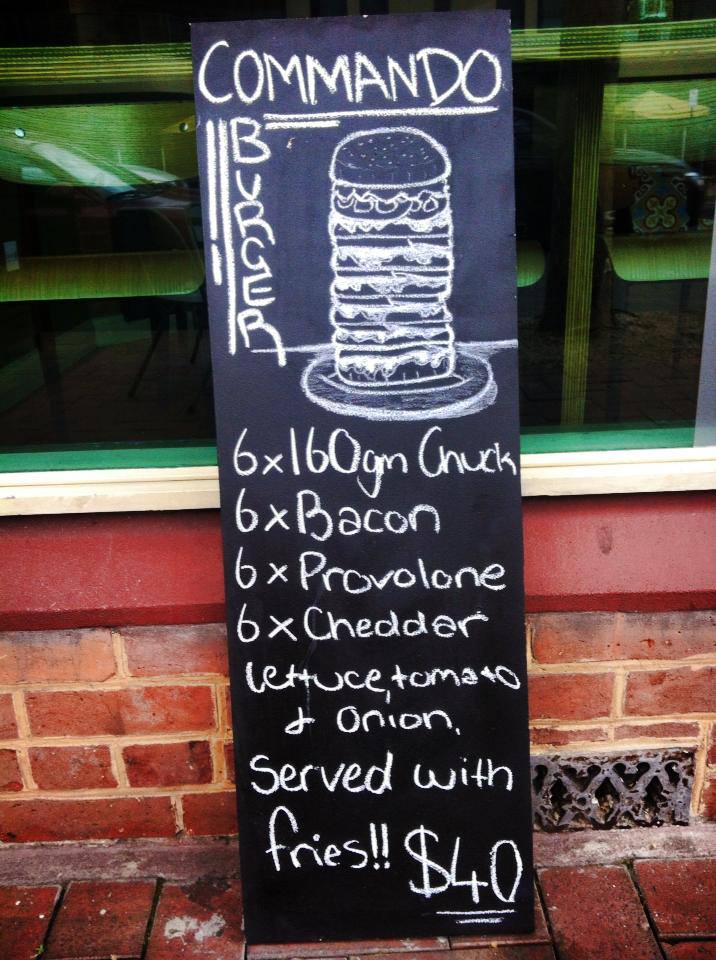 COMMANDO
BURGER
6x160gm Chuck
6xBacon
6xProvolone
6xCheddar
lettuce, tomato
& onion.
Served with
fries!! $40